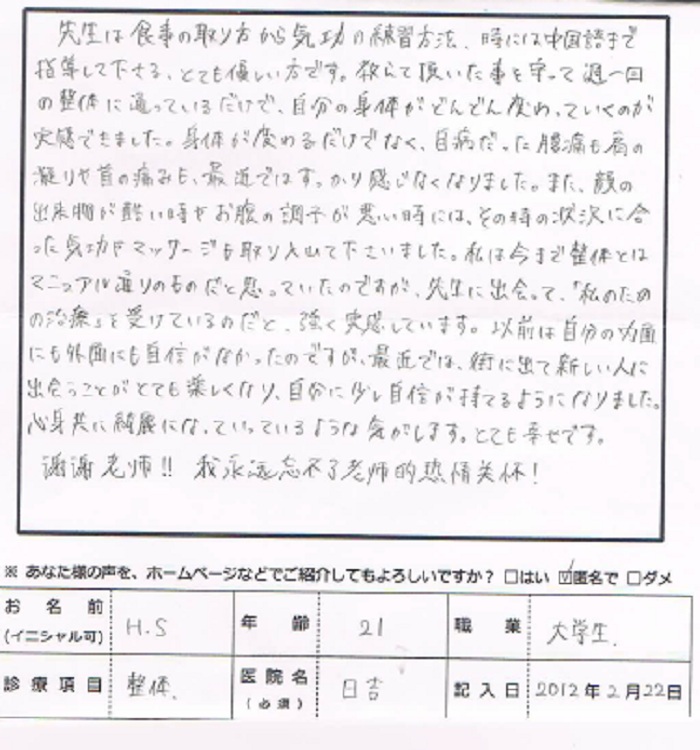 先生は食事の取り方から気功の練習方法、時には中国語まで
指導して下さる、とても優しい方です。教えて頂いた事を守って週一回
の整体に通っているだけで、自分の身体がどんどん変わっていくのが
実感できました。身体が変わるだけでなく、自病だった腰痛も肩の
凝りや首の痛みも、最近ではすっかり感じなくなりました。また、顔の
出来物が酷い時やお腹の調子が悪い時には、その時の状況に合
った気功やマッサージも取り入れて下さいました。私は今まで整体とは
マニュアル通りのものだと思っていたのですが、先生に出会って、「私のため
の治療」を受けているのだと、強く実感しています。以前は自分の内面
にも外面にも自信がなかったのですが、最近では、街に出て新しい人に
出会うことがとても楽しくなり、自分に少し自信が持てるようになりました。
心身共に綺麗になっていっているような気がします。とても幸せです。
谢谢老师!! 我永远忘不了老师的热情关怀!
※ あなた様の声を、ホームページなどでご紹介してもよろしいですか? □はい ☑匿名で □ダメ
お名前 (イニシャル可) H.S 年齢 21 職業 大学生.
診療項目 整体、 医院名 (必須) 日吉 記入日 2012年2月22日